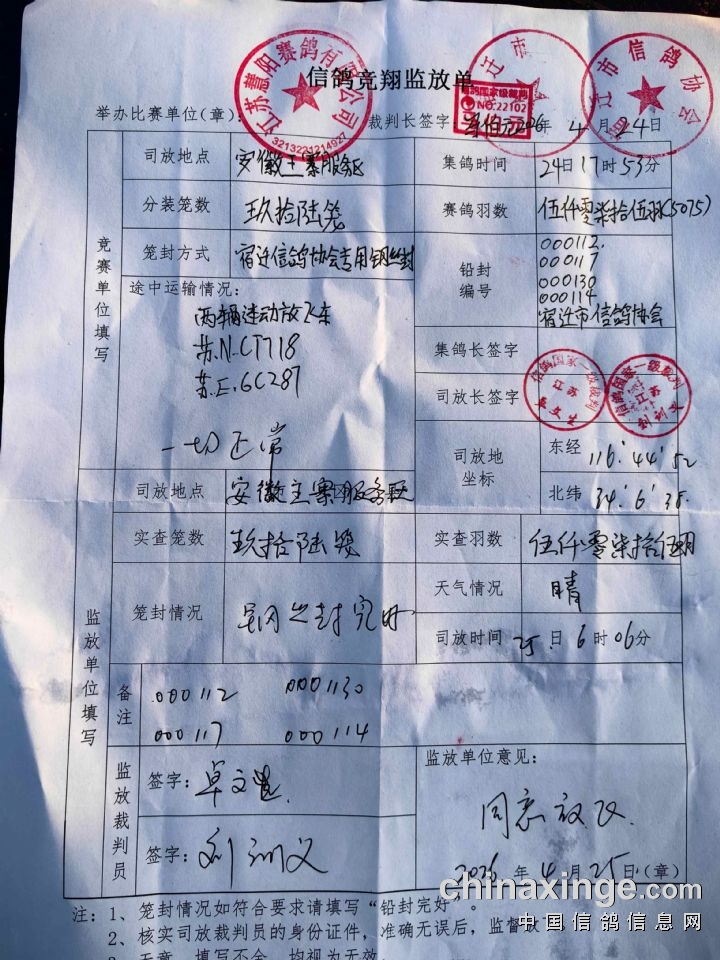 信鸽竞翔监放单
江苏慧阳赛鸽有限公司
3213221214927
信鸽国家级裁判
NO:22102
江市
江市信鸽协会
举办比赛单位(章):
裁判长签字: 2026年4月24日
竞赛单位填写
司放地点 安徽王寨服务区 集鸽时间 24日17时53分
分装笼数 玖拾陆笼 赛鸽羽数 伍仟零柒拾伍羽(5075)
笼封方式 宿迁信鸽协会专用钢丝封 铅封编号 000112.
000117
000130
000114
宿迁市信鸽协会
途中运输情况:
两辆连动放飞车
苏.N.CT718
苏.E.6C287
一切正常
集鸽长签字
司放长签字
信鸽国家一级裁判 江苏
信鸽国家一级裁判 江苏
司放地坐标 东经 116°44′52
北纬 34°6′38
监放单位填写
司放地点 安徽王寨服务区
实查笼数 玖拾陆笼 实查羽数 伍仟零柒拾伍羽
笼封情况 钢丝封完好 天气情况 晴
司放时间 25日6时06分
备注 000112 0001130
000117 000114
监放裁判员
签字: 卓文
签字: 刘训义
监放单位意见:
同意放飞.
2026年4月25日(章)
注: 1、笼封情况如符合要求请填写“铅封完好”。
2、核实司放裁判员的身份证件,准确无误后,监督放
3、天章、填写不全,均视为无效
chinaxinge.com
中国信鸽信息网